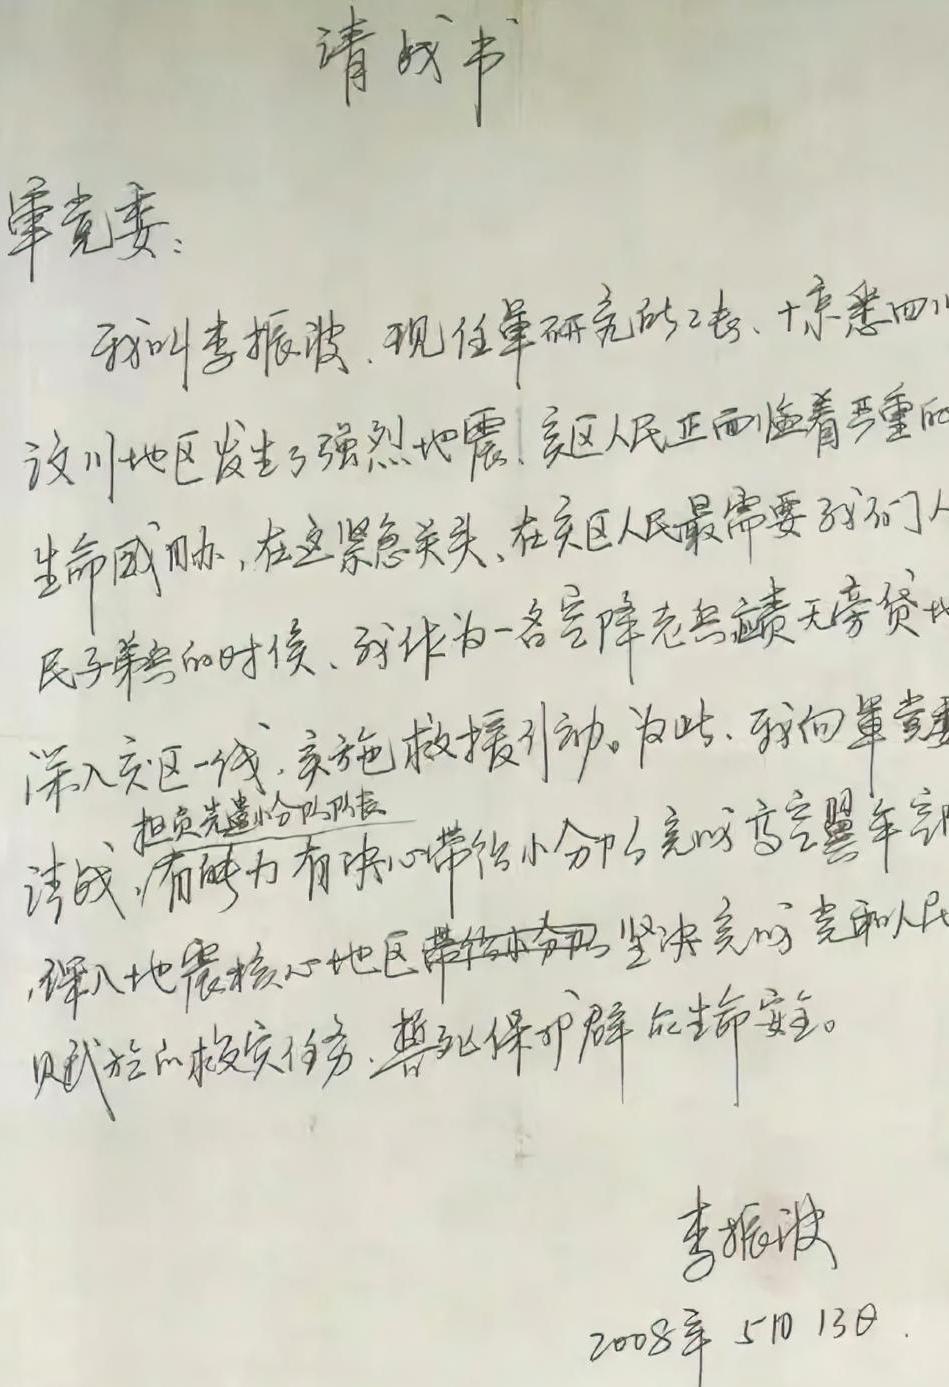 请战书
军党委：
我叫李振波、现任军研究所所长、惊悉四川
汶川地区发生了强烈地震、灾区人民正面临着严重的
生命威胁，在这紧急关头、在灾区人民最需要我们人
民子弟兵的时候、我作为一名空降老兵责无旁贷地
深入灾区一线，实施救援行动。为此、我向军党委
担负先遣小分队队长
请战，有能力有决心带领小分队完成高空翼伞
深入地震核心地区带领小分队坚决完成党和人民
赋于的救灾任务、誓死保护群众生命安全。
李振波
2008年5月13日.